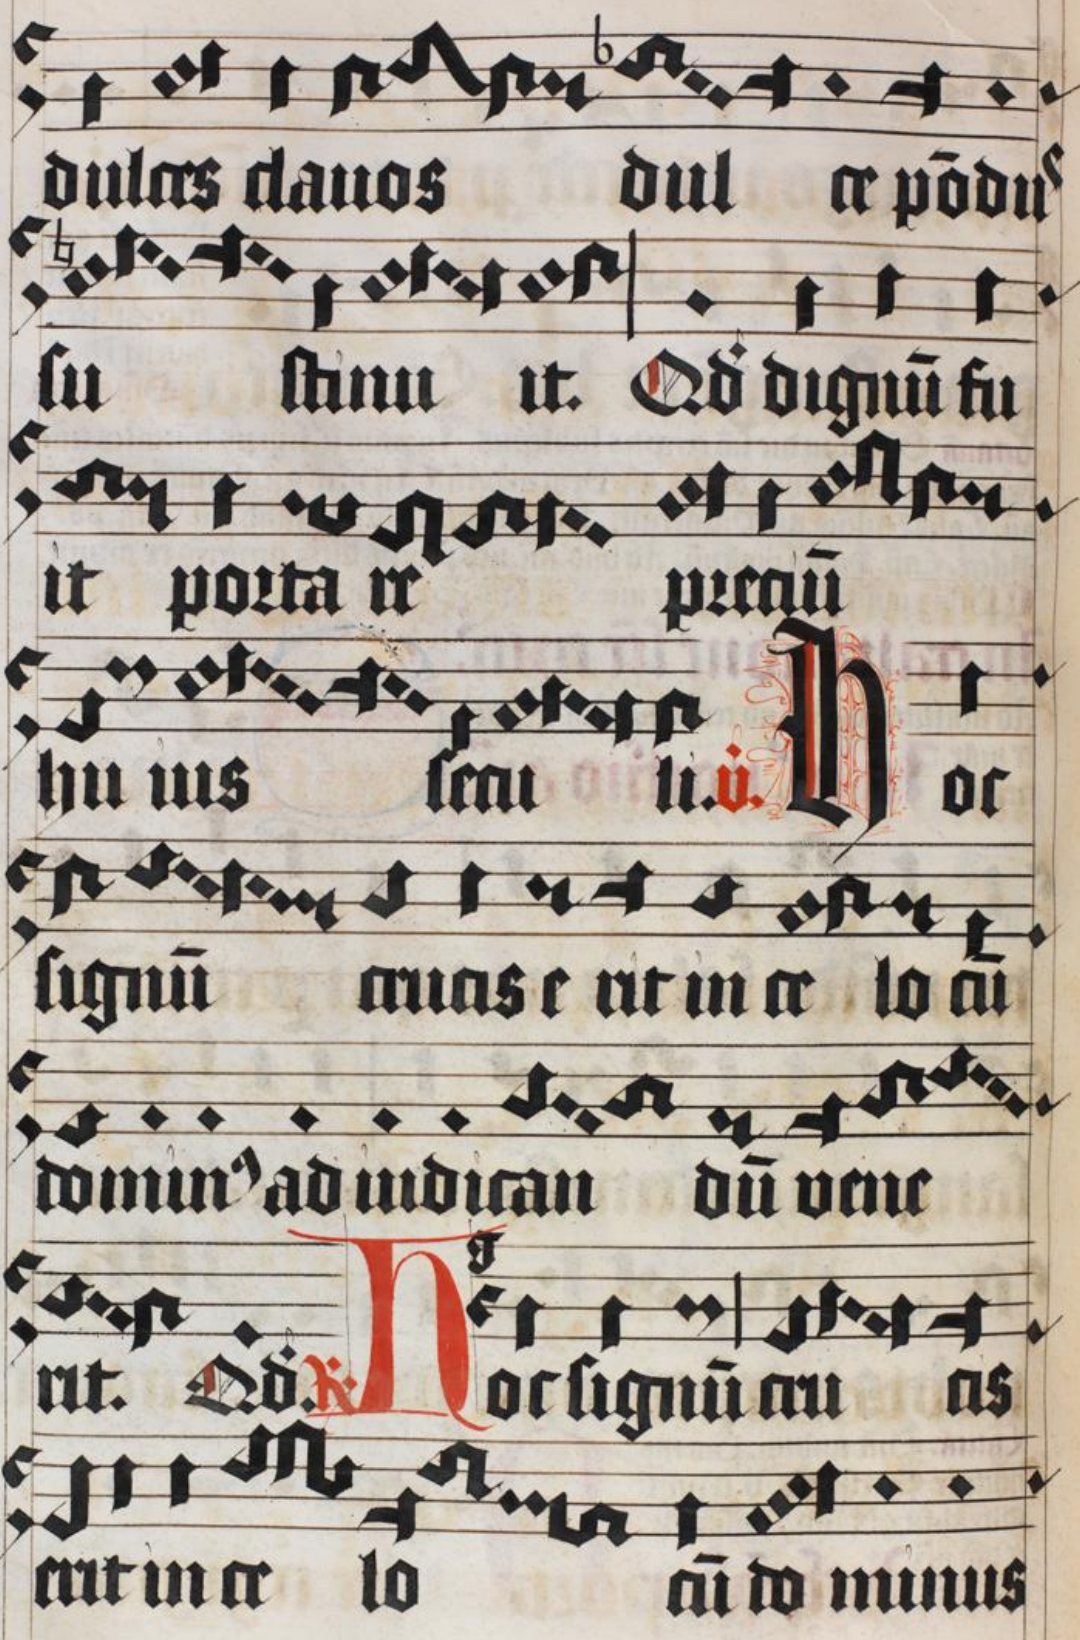 dulces clauos dul ce põdus
su stinu it. Qd̄ dignū fu
it porta re preciū
hu ius secu li. v̇. Hoc
signū crucis e rit in ce lo cū
dominꝰ ad iudican dū vene
rit. Qd̄. ℟. Hoc signū cru cis
erit in ce lo cū do minus